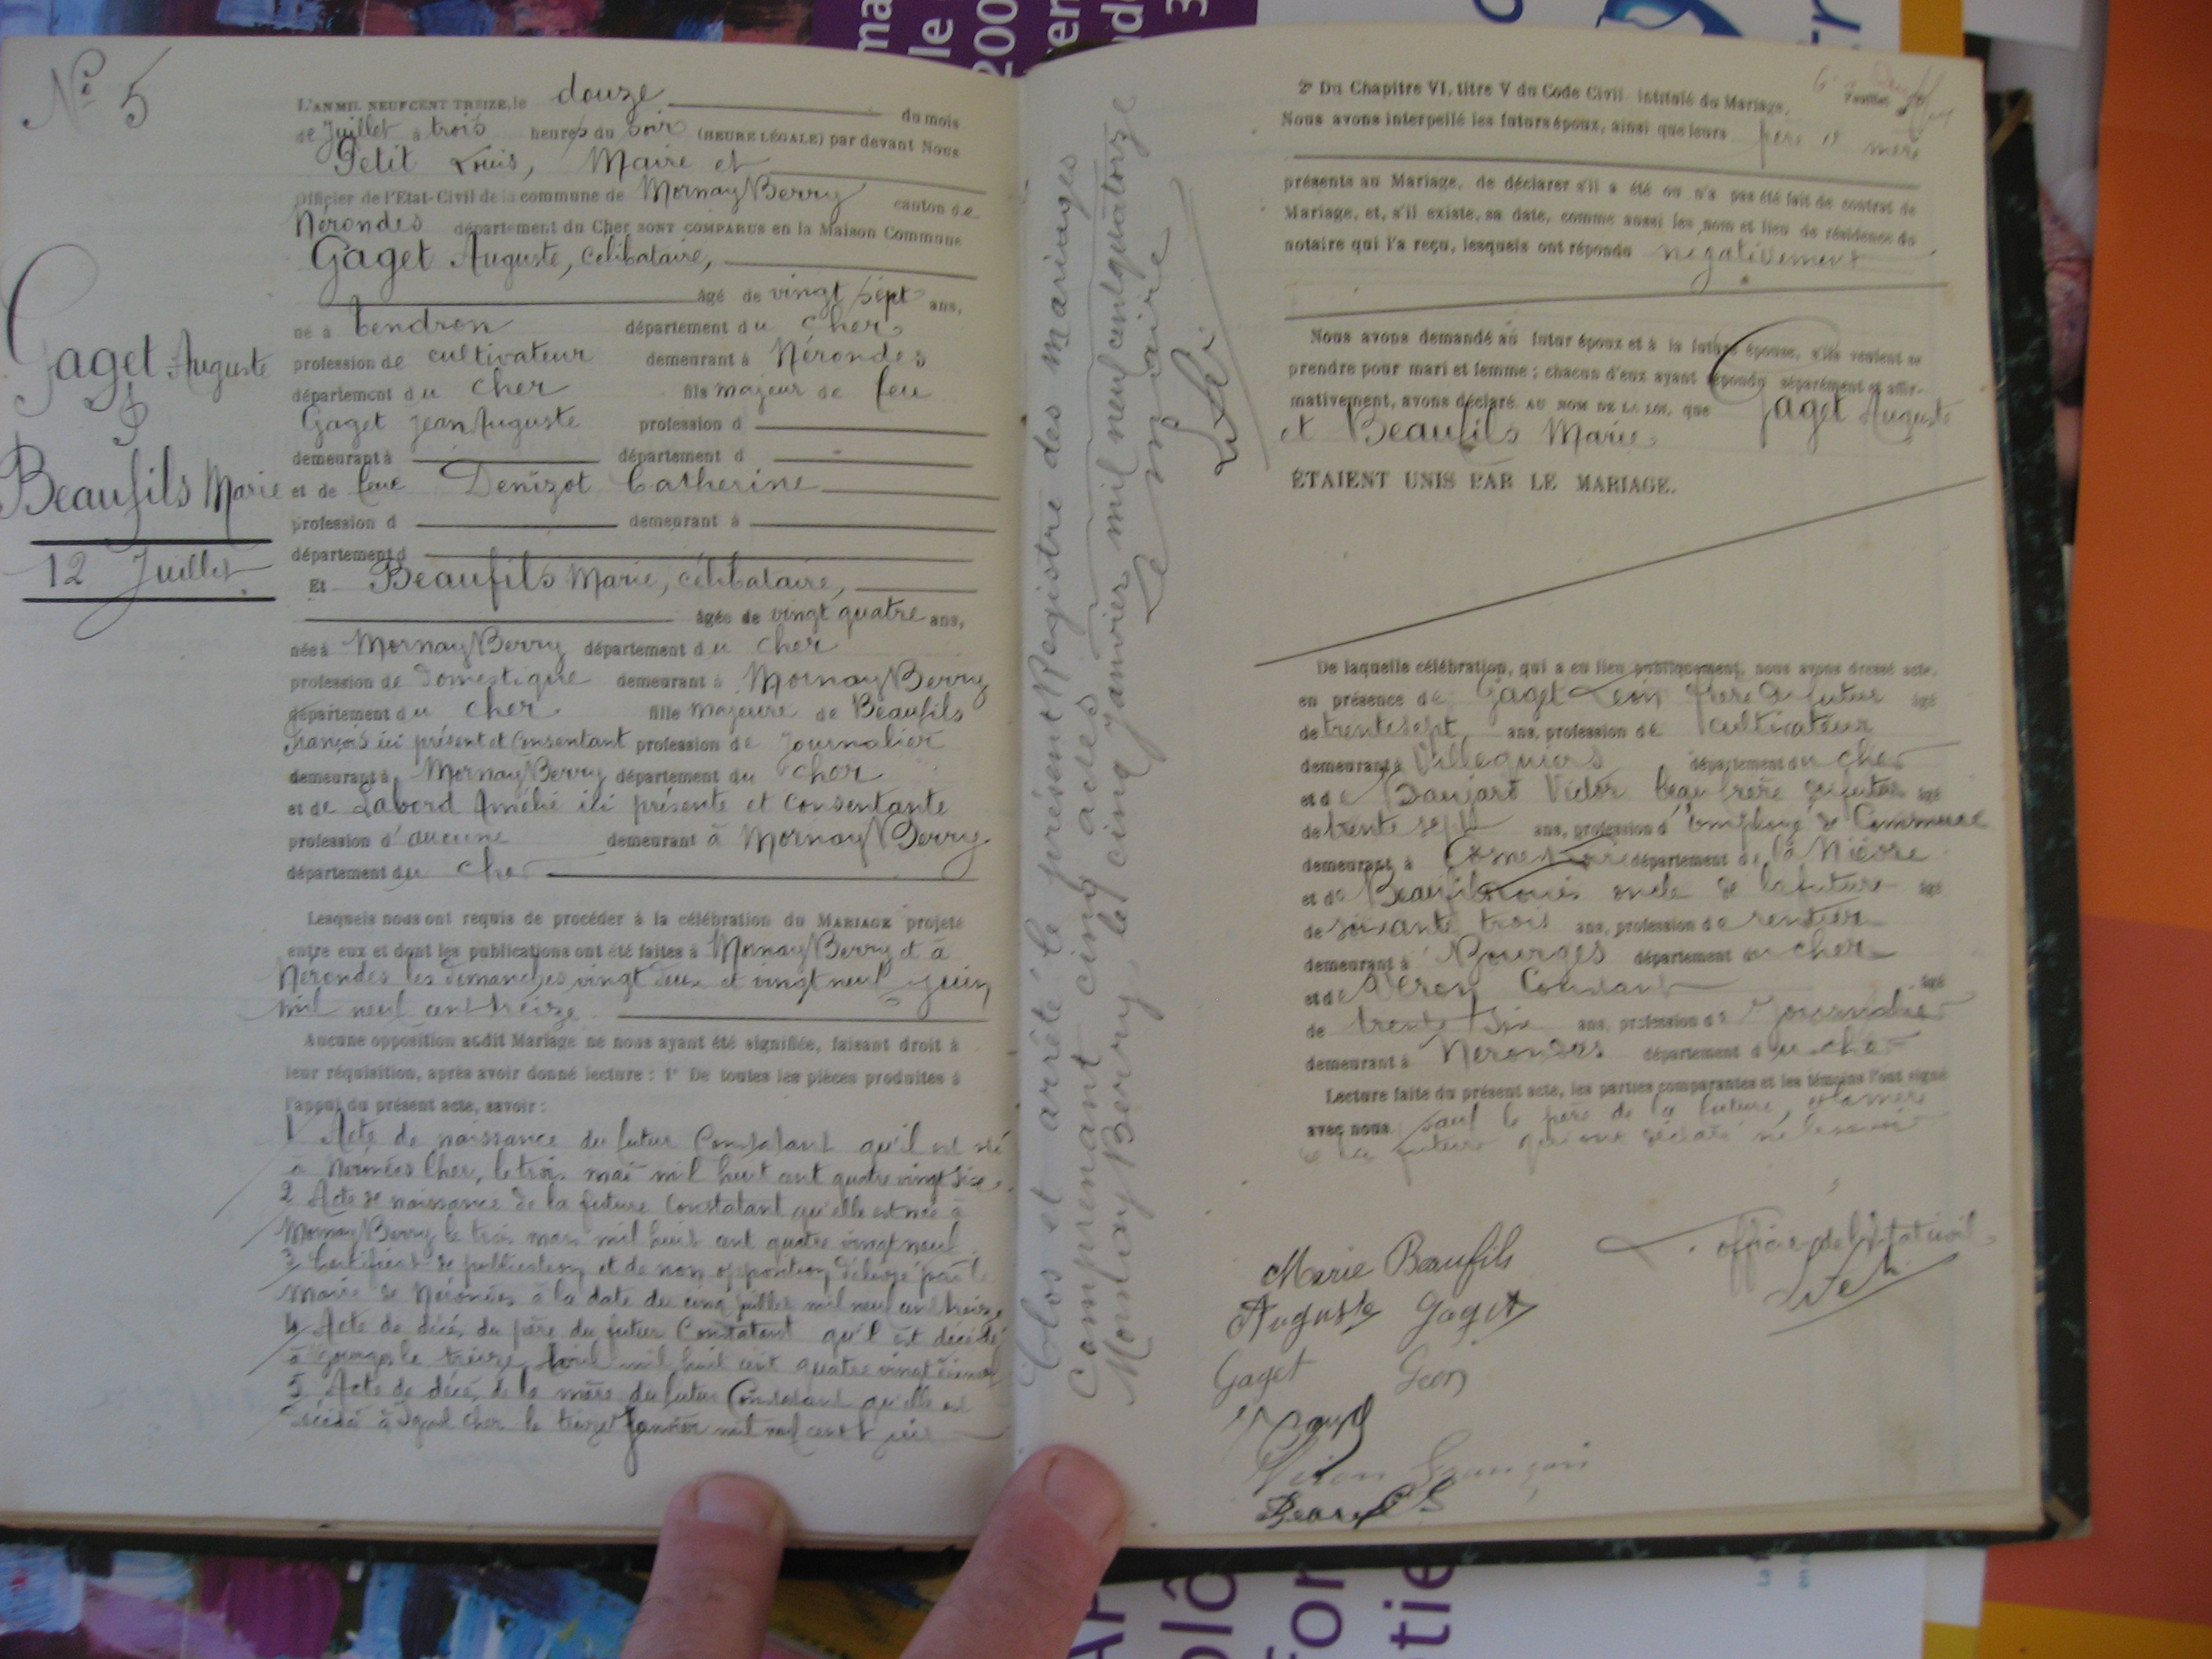 No 5
Gaget Auguste
&
Beaufils Marie
12 Juillet
L'AN MIL NEUF CENT TREIZE, le douze du mois
de Juillet à trois heures du soir (HEURE LÉGALE) par devant Nous
Petit Louis, Maire et
Officier de l'Etat-Civil de la commune de Mornay Berry canton de
Nérondes département du Cher SONT COMPARUS en la Maison Commune
Gaget Auguste, célibataire,
âgé de vingt sept ans,
né à Tendron département du Cher
profession de cultivateur demeurant à Nérondes
département du Cher fils majeur de feu
Gaget Jean Auguste profession d
demeurant à département d
et de feue Denizot Catherine
profession d demeurant à
département d
Et Beaufils Marie, célibataire,
âgée de vingt quatre ans,
née à Mornay Berry département du Cher
profession de domestique demeurant à Mornay Berry
département du Cher fille majeure de Beaufils
François ici présent et consentant profession de Journalier
demeurant à Mornay Berry département du Cher
et de Labord Amélie ici présente et consentante
profession d'aucune demeurant à Mornay Berry
département du Cher
Lesquels nous ont requis de procéder à la célébration du MARIAGE projeté
entre eux et dont les publications ont été faites à Mornay Berry et à
Nérondes les dimanches vingt deux et vingt neuf juin
mil neuf cent treize
Aucune opposition audit Mariage ne nous ayant été signifiée, faisant droit à
leur réquisition, après avoir donné lecture : 1° De toutes les pièces produites à
l'appui du présent acte, savoir :
1 Acte de naissance du futur Constatant qu'il est né
à Cher, le trois mai mil huit cent quatre vingt six
2 Acte de naissance de la future Constatant qu'elle est née à
Mornay Berry le trois mars mil huit cent quatre vingt neuf
3 Certificat de publication et de non opposition délivré par le
Maire de Nérondes à la date du cinq juillet mil neuf cent treize
4 Acte de décès du père du futur Constatant qu'il est décédé
à le treize Avril mil huit cent quatre vingt
5 Acte de décès de la mère du futur Constatant qu'elle est
décédé à Cher le treize Janvier mil neuf cent
Clos et arrêté le présent Registre des mariages
Comprenant cinq actes
Mornay Berry, le cinq janvier mil neuf cent quatorze
Le maire
Feuillet
2° Du Chapitre VI, titre V du Code Civil intitulé du Mariage.
Nous avons interpellé les futurs époux, ainsi que leurs père et mère
présents au Mariage, de déclarer s'il a été ou n'a pas été fait de contrat de
Mariage, et, s'il existe, sa date, comme aussi les nom et lieu de résidence du
notaire qui l'a reçu, lesquels ont répondu négativement
Nous avons demandé au futur époux et à la future épouse, s'ils veulent se
prendre pour mari et femme ; chacun d'eux ayant répondu séparément et affir-
mativement, avons déclaré, AU NOM DE LA LOI, que Gaget Auguste
et Beaufils Marie
ÉTAIENT UNIS PAR LE MARIAGE.
De laquelle célébration, qui a eu lieu publiquement, nous avons dressé acte,
en présence de Gaget Léon frère du futur âgé
de trente sept ans, profession de cultivateur
demeurant à Villequiers département du Cher
et de Victor beau frère du futur âgé
de trente sept ans, profession d'employé de Commerce
demeurant à département de la Nièvre
et de Beaufils Louis oncle de la future âgé
de soixante trois ans, profession de rentier
demeurant à Bourges département du Cher
et de Véron Constant âgé
de trente six ans, profession de Journalier
demeurant à Nérondes département du Cher
Lecture faite du présent acte, les parties comparantes et les témoins l'ont signé
avec nous sauf le père de la future, et la mère
de la future qui ont déclaré ne le savoir
officier de l'état civil
Marie Beaufils
Auguste Gaget
Gaget Léon
Véron
Beaufils